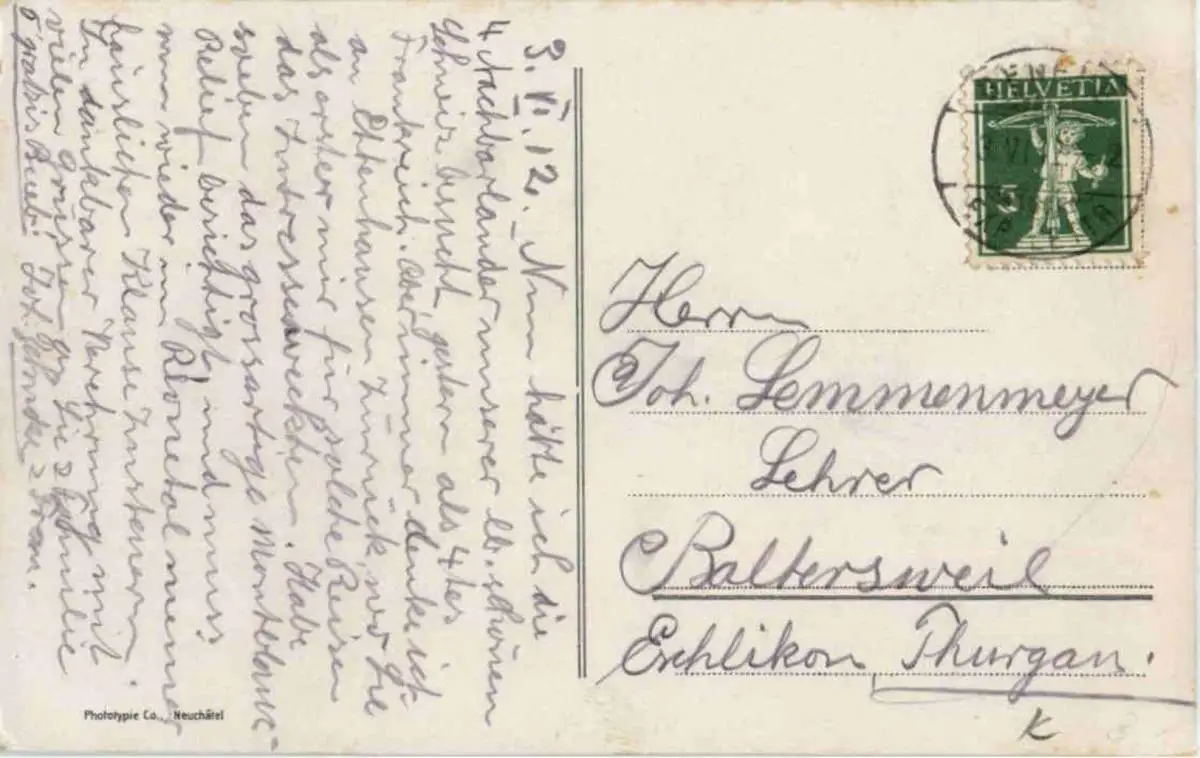 3.VI.12. Nun hätte ich die
4 Nachbarländer unserer lb. schönen
Schweiz besucht, gestern als 4tes
Frankreich. Aber immer denke ich
an Ettenhausen zurück, wo Sie
als erster mir für solche Reisen
das Intresse weckten. Habe
soeben das grossartige Montblanc-
Relief besichtigt und muss
nun wieder im Rhonetal meiner
häuslichen Klause zusteuern.
In dankbarer Verehrung mit
vielen Grüssen an Sie & Familie
Joh. & Frau.
Phototypie Co., Neuchâtel
HELVETIA
5
Herrn
Joh. Lemmenmeyer
Lehrer
Baltersweil
Eschlikon Thurgau.
K